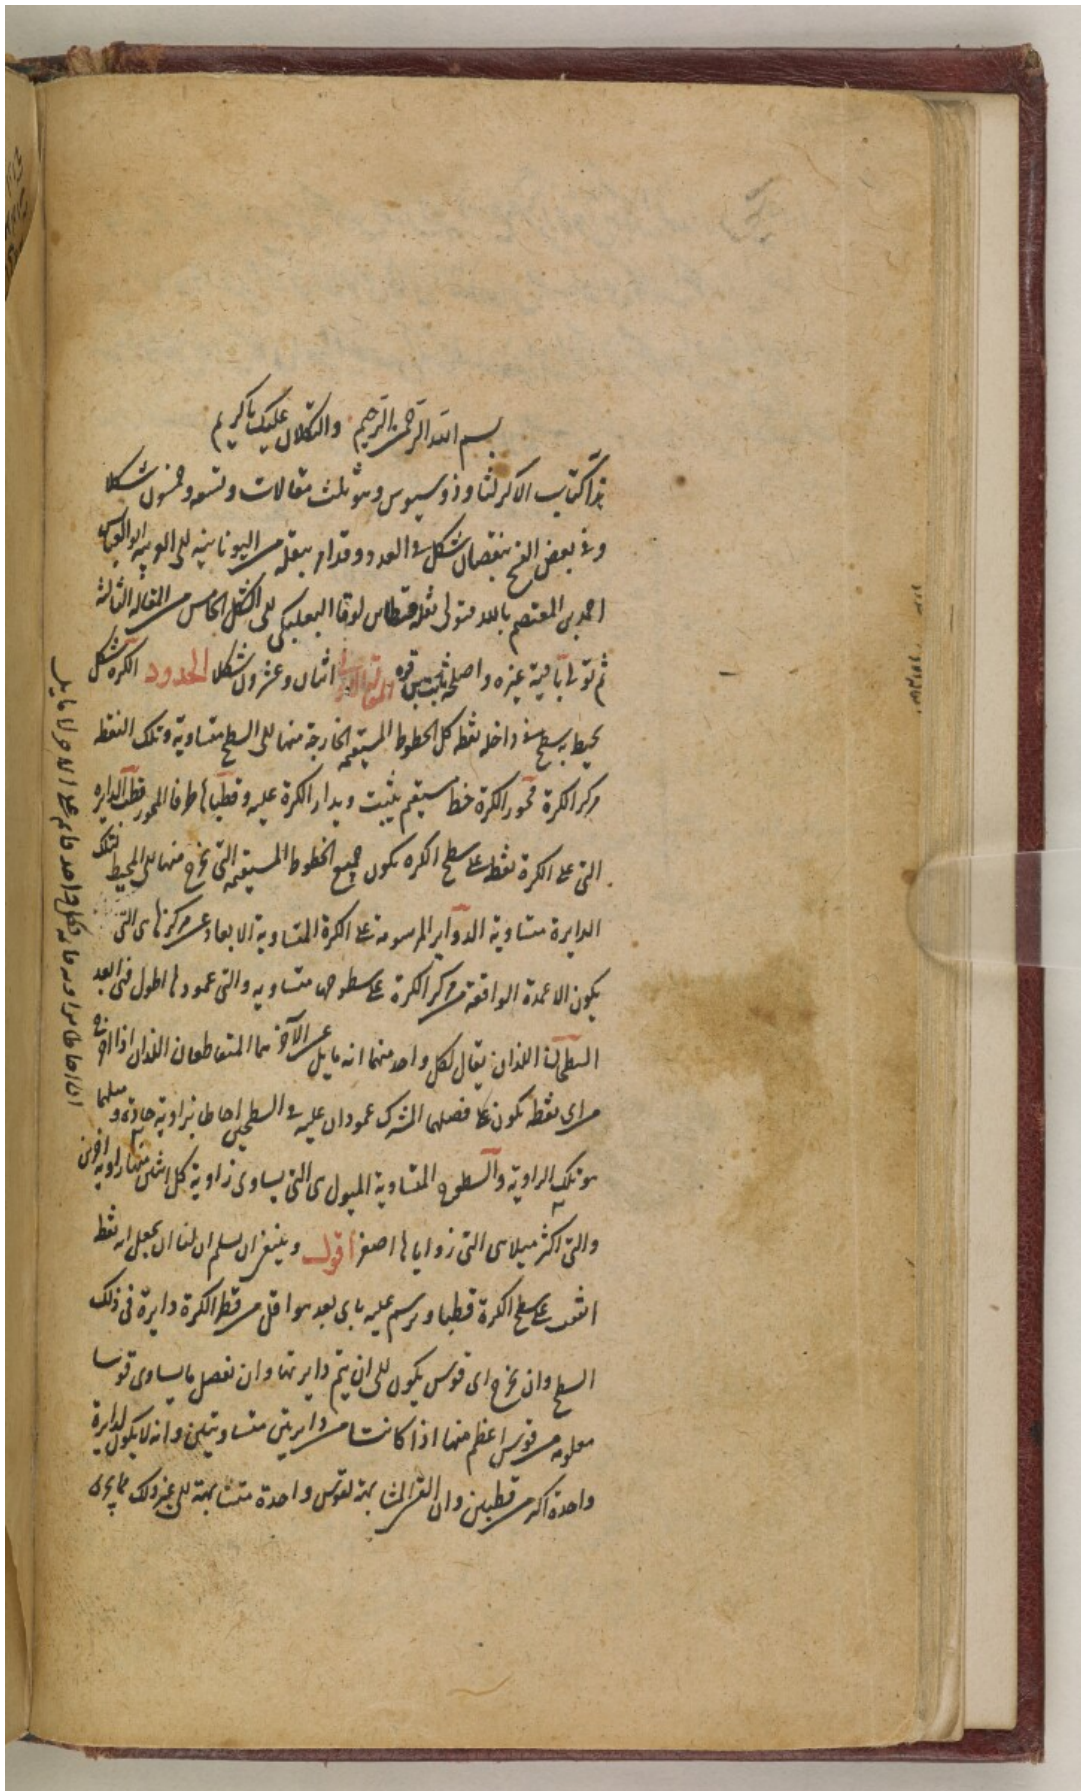 بسم الله الرحمن الرحيم والتكلان عليك يا كريم
هذا كتاب الاكر لثاوذوسيوس وهو ثلث مقالات وتسعه وخمسون شكلا
وفى بعض النسخ بنقصان شكل فى العدد وقد امر بنقله من اليونانيه الى العربيه ابو العباس
احمد بن المعتصم بالله فتولى نقله قسطا بن لوقا البعلبكى الى الشكل الخامس من المقاله الثالثة
ثم تولى باقيه غيره واصلحه ثابت بن قره المقالة الاولى اثنان وعشرون شكلا الحدود الكره شكل
يحيط به سطح فى داخله نقطه كل الخطوط المستقيمه الخارجة منها الى السطح متساوية وتلك النقطه
مركز الكرة محور الكرة خط مستقيم يثبت ويدار الكرة عليه وقطباها طرفا المحور قطب الدايره
التى على الكرة نقطه على سطح الكره يكون جميع الخطوط المستقيمه التى يخرج منها الى المحيط لتلك
الدايرة متساوية الدواير المرسومة على الكرة المتساوية الابعاد عن مركزها هى التى
يكون الاعمدة الواقعة من مركز الكرة على سطوحها متساويه والتى عمودها اطول فهى ابعد
السطحان اللذان يقال لكل واحد منهما انه مايل عن الآخر هما المتقاطعان اللذان اذا اخرج
من اى نقطه يكون على فصلهما المشترك عمودان عليه فى السطحين احاطا بزاوية حادة وميلهما
هو تلك الزاوية والسطوح المتساوية الميول هى التى يساوى زاوية كل اثنين منها زاويه اخرين
والتى اكثر ميلا هى التى زواياها اصغر اقول وينبغى ان يسلم ان لنا ان نجعل اية نقطه
اتفقت على سطح الكرة قطبا ونرسم عليه باى بعد هو اقل من قطر الكرة دايرة فى ذلك
السطح وان نخرج اى قوس يكون الى ان يتم دايرتها وان نفصل ما يساوى قوسا
معلومه من قوس اعظم منها اذا كانتا من دايرتين متساويتين وانه لا يكون لدايرة
واحدة اكثر من قطبين وان القسى المشابهة لقوس واحدة متشابهة الى غير ذلك مما يجرى